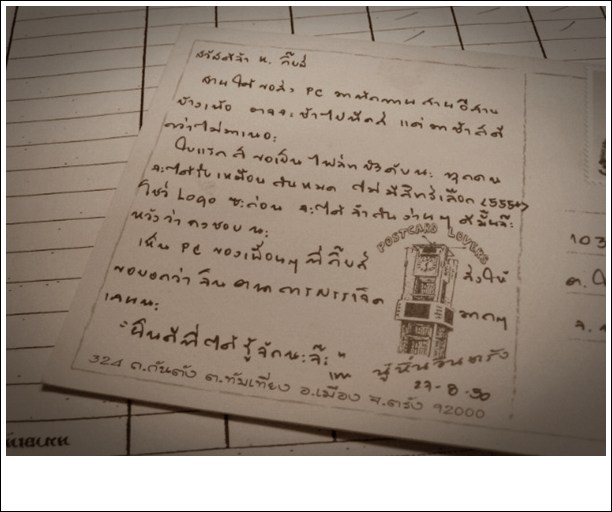 สวัสดีจ้า น. กิ๊บส์
ได้ ขอส่ง PC มาทักทาย
บ้างเน้อ อาจจะช้าไปนิดส์ แต่ มาช้าส์ดี
กว่าไม่มาเนอะ
ใบแรก ส์ ขอเป็น ไฟล์ท บังคับนะ ทุกคน
จะได้รับ เหมือน กันหมด ไม่ มีสิทธิ์เลือก (555+)
โชว์ Logo ซะก่อน จะได้ จำกัน ง่ายๆ
หวังว่า คงชอบ นะ
เห็น PC ของเพื่อนๆ ที่ กิ๊บส์ ส่งให้
ขอบอกว่า มากๆ
เลยนะ
"ยินดีที่ได้ รู้จักนะจ๊ะ"
POSTCARD LOVERS
27-8-50
324 ถ.กันตัง ต.ทับเที่ยง อ.เมือง จ.ตรัง 92000
103
ต.
จ.